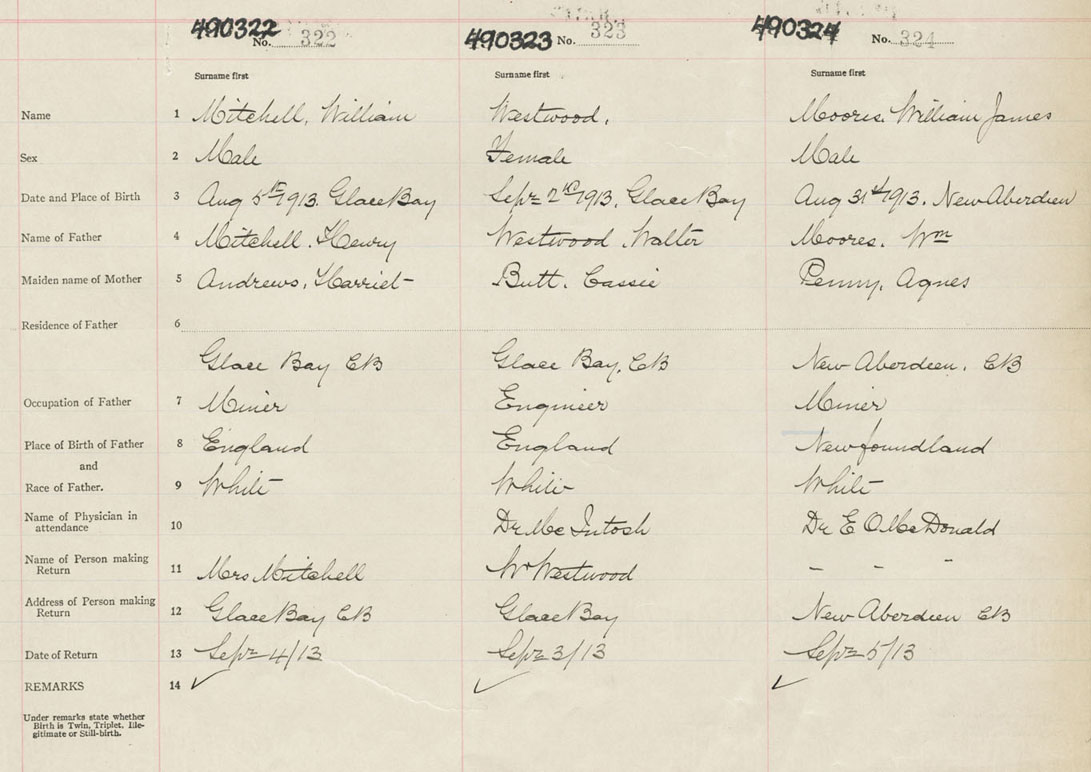 490322 490323 490324
No. 322 No. 323 No. 324
Surname first Surname first Surname first
Name 1 Mitchell, William Westwood, Moores, William James
Sex 2 Male Female Male
Date and Place of Birth 3 Aug 5th 1913. Glace Bay Sept 2nd 1913, Glace Bay Aug 31st 1913. New Aberdeen
Name of Father 4 Mitchell, Henry Westwood, Walter Moores, Wm
Maiden name of Mother 5 Andrews, Harriet Butt, Cassie Penny, Agnes
Residence of Father 6
Glace Bay CB Glace Bay, CB New Aberdeen, CB
Occupation of Father 7 Miner Engineer Miner
Place of Birth of Father 8 England England Newfoundland
and
Race of Father. 9 White White White
Name of Physician in
attendance 10 Dr McIntosh Dr E O McDonald
Name of Person making
Return 11 Mrs Mitchell W Westwood - - -
Address of Person making
Return 12 Glace Bay CB Glace Bay New Aberdeen CB
Date of Return 13 Sept 4/13 Sept 3/13 Sept 5/13
REMARKS 14 ✓ ✓ ✓
Under remarks state whether
Birth is Twin, Triplet, Ille-
gitimate or Still-birth.